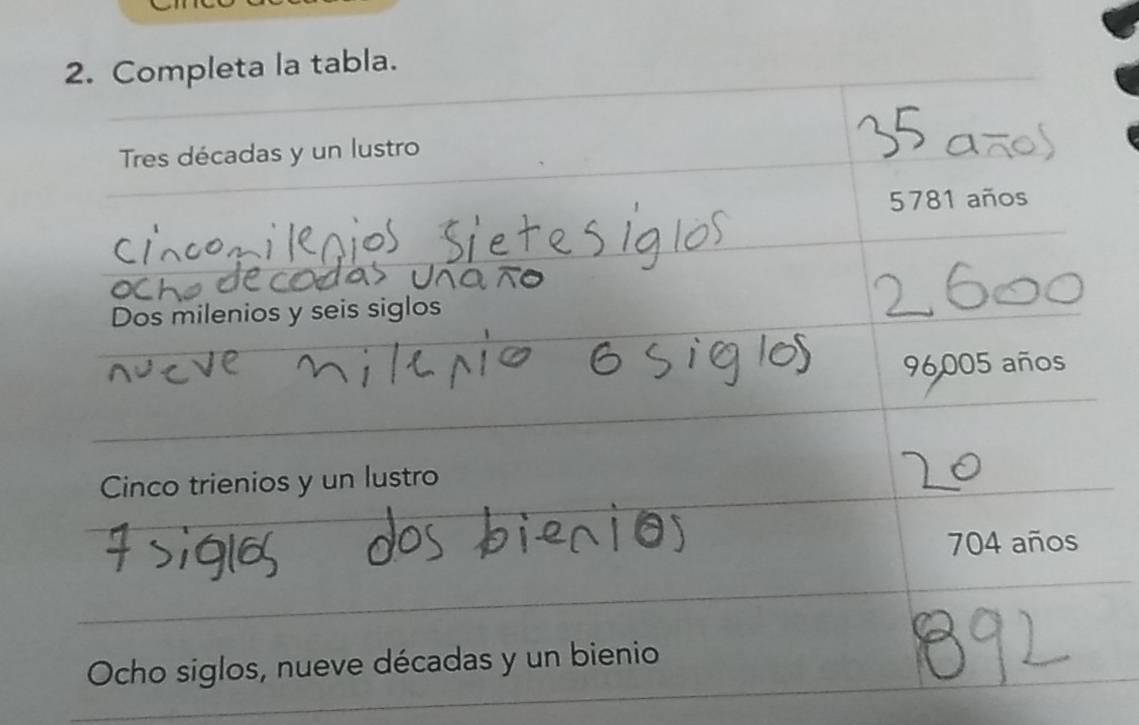 2. Completa la tabla.
Tres décadas y un lustro 35 años
5781 años
cincomilenios sietesiglos
ocho decadas unaño
Dos milenios y seis siglos 2600
nueve milenio 6 siglos 96,005 años
Cinco trienios y un lustro 20
7 siglos dos bienios 704 años
Ocho siglos, nueve décadas y un bienio 892